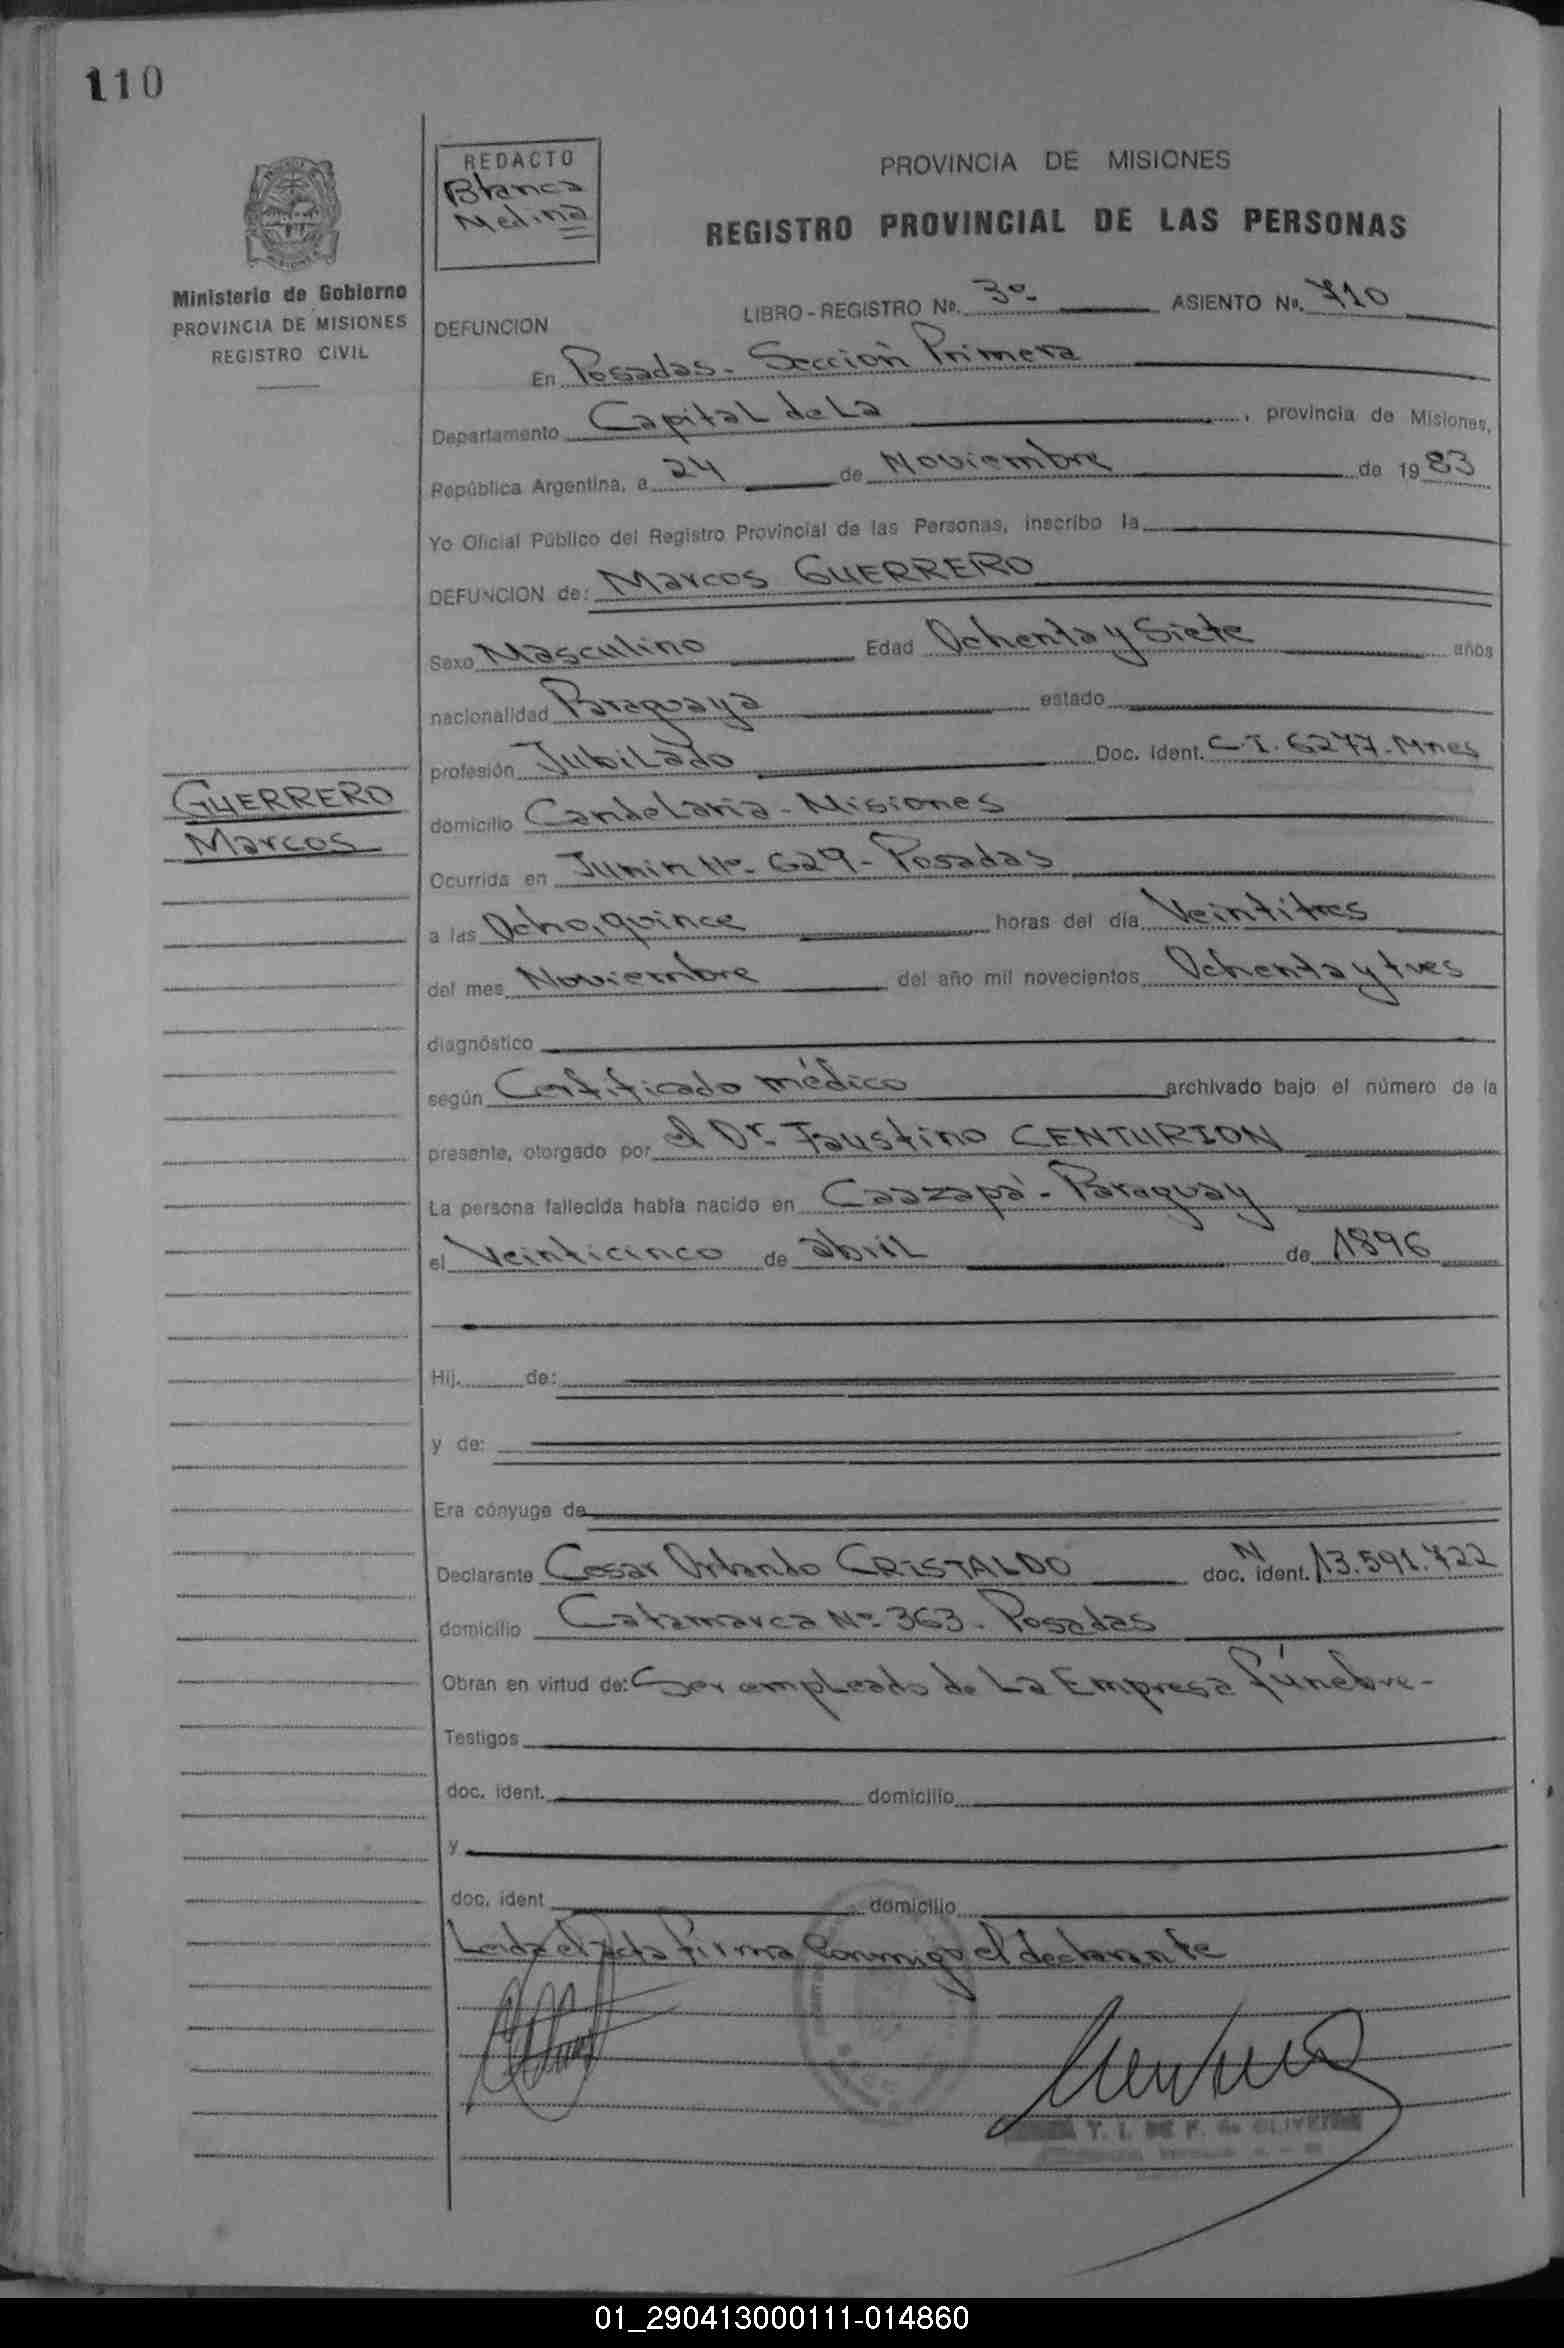 110
REDACTO
Blanca
Melina
PROVINCIA DE MISIONES
REGISTRO PROVINCIAL DE LAS PERSONAS
Ministerio de Gobierno
PROVINCIA DE MISIONES
REGISTRO CIVIL
LIBRO - REGISTRO No. 3º- ASIENTO No. 710
DEFUNCION
En Posadas - Sección Primera
Departamento Capital de La , provincia de Misiones,
República Argentina, a 24 de Noviembre de 1983
Yo Oficial Público del Registro Provincial de las Personas, inscribo la
DEFUNCION de: Marcos GUERRERO
Sexo Masculino Edad Ochenta y Siete años
nacionalidad Paraguaya estado
profesión Jubilado Doc. Ident. C.I. 6277- Mnes
GUERRERO
Marcos
domicilio Candelaria - Misiones
Ocurrida en Junin Nº- 629 - Posadas
a las Ocho, quince horas del día Veintitres
del mes Noviembre del año mil novecientos Ochenta y tres
diagnóstico
según Certificado médico archivado bajo el número de la
presente, otorgado por el Dr. Faustino CENTURION
La persona fallecida había nacido en Caazapá - Paraguay
el Veinticinco de abril de 1896
Hij. de:
y de:
Era cónyuge de
Declarante Cesar Orlando CRISTALDO doc. ident. N 13.591.722
domicilio Catamarca Nº- 363 - Posadas
Obran en virtud de: Ser empleado de La Empresa fúnebre -
Testigos
doc. ident. domicilio
y
doc. ident domicilio
Leida el acta firma Conmigo el declarante
Y. I. DE F. de OLIVEIRA
01_290413000111-014860